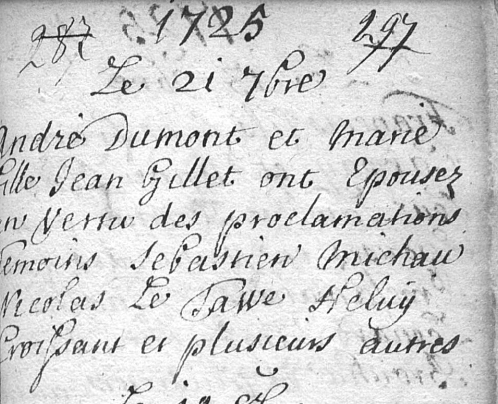 287 1725 297
Le 21 7bre
André Dumont et Marie
fille Jean Gillet ont Epousez
en Vertu des proclamations
temoins Sebastien Michau
Nicolas Le Tawe Heluy
Croissant et plusieurs autres